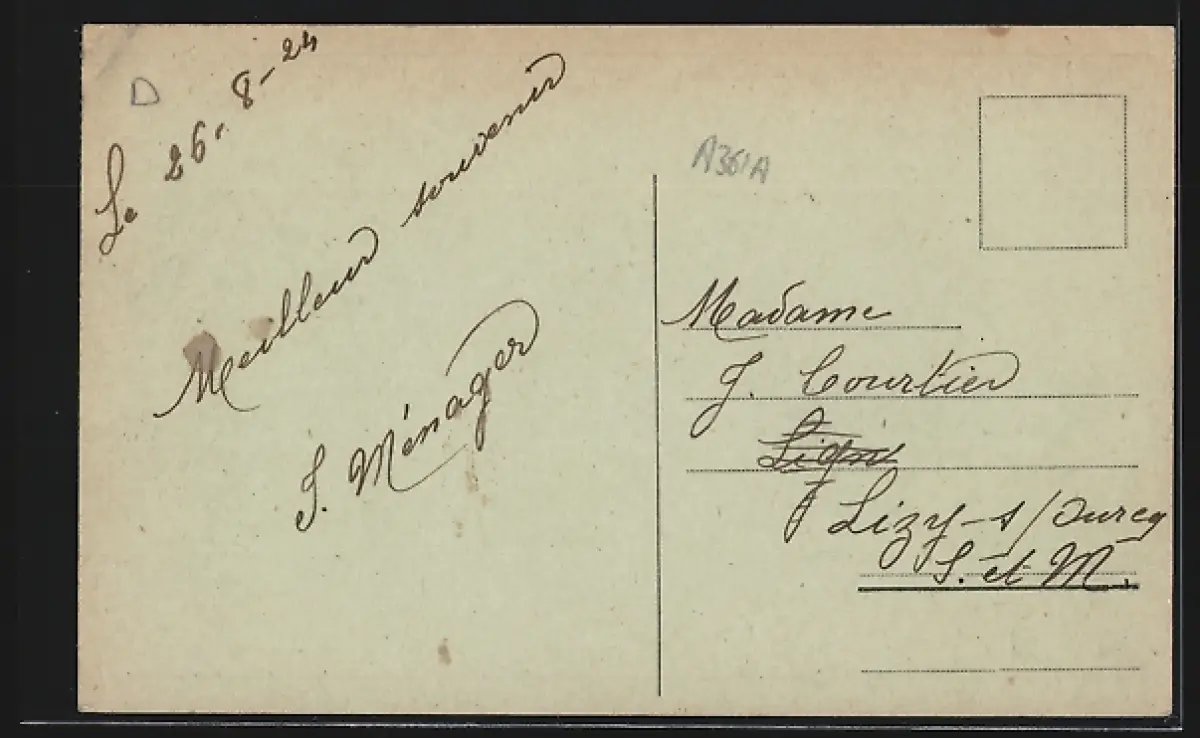 D
Le 26-8-24
Meilleur souvenir
S. Ménager
A361A
Madame
J. Courtier
Lizy-s/Ourcq
S. et M.